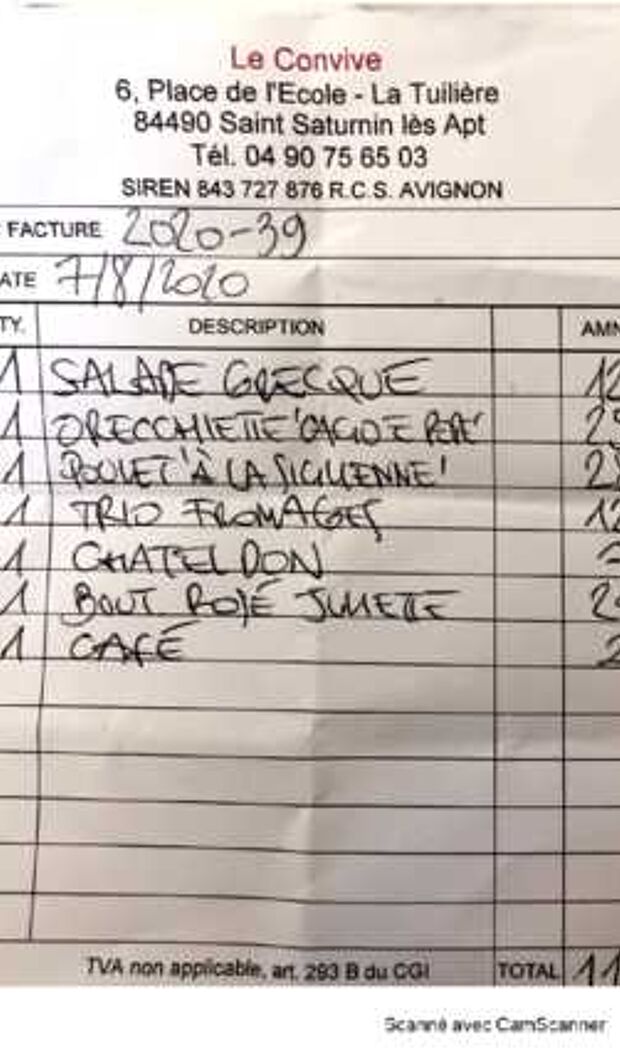 Le Convive
6, Place de l'Ecole - La Tuilière
84490 Saint Saturnin lès Apt
Tél. 04 90 75 65 03
SIREN 843 727 876 R.C.S. AVIGNON
FACTURE 2020-39
ATE 7/8/2020
TY. DESCRIPTION AMN
1 SALADE GRECQUE 12
1 ORECCHIETTE 'CACIO E PEPE'
1 POULET 'À LA SICILIENNE'
1 TRIO FROMAGES 12
1 CHATELDON
1 BOUT ROSÉ JULIETTE
1 CAFÉ 2
TVA non applicable, art. 293 B du CGI TOTAL 11
Scanné avec CamScanner